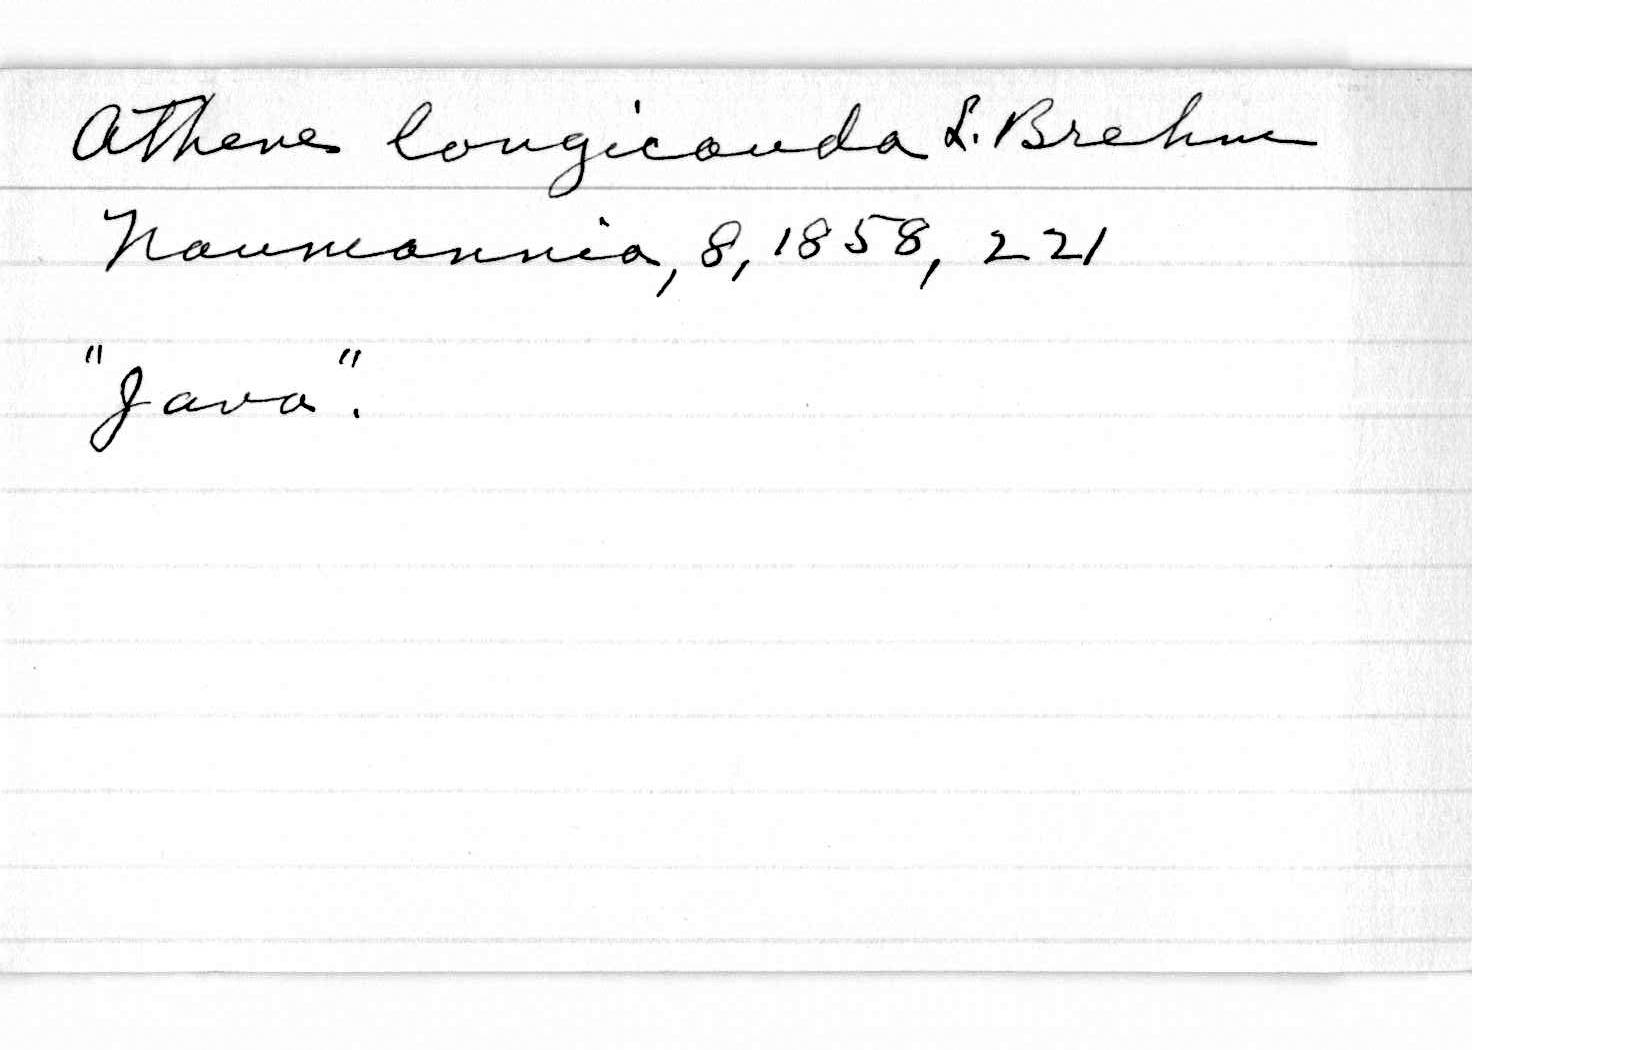 Athene longicauda L. Brehm
Naumannia, 8, 1858, 221
"Java".